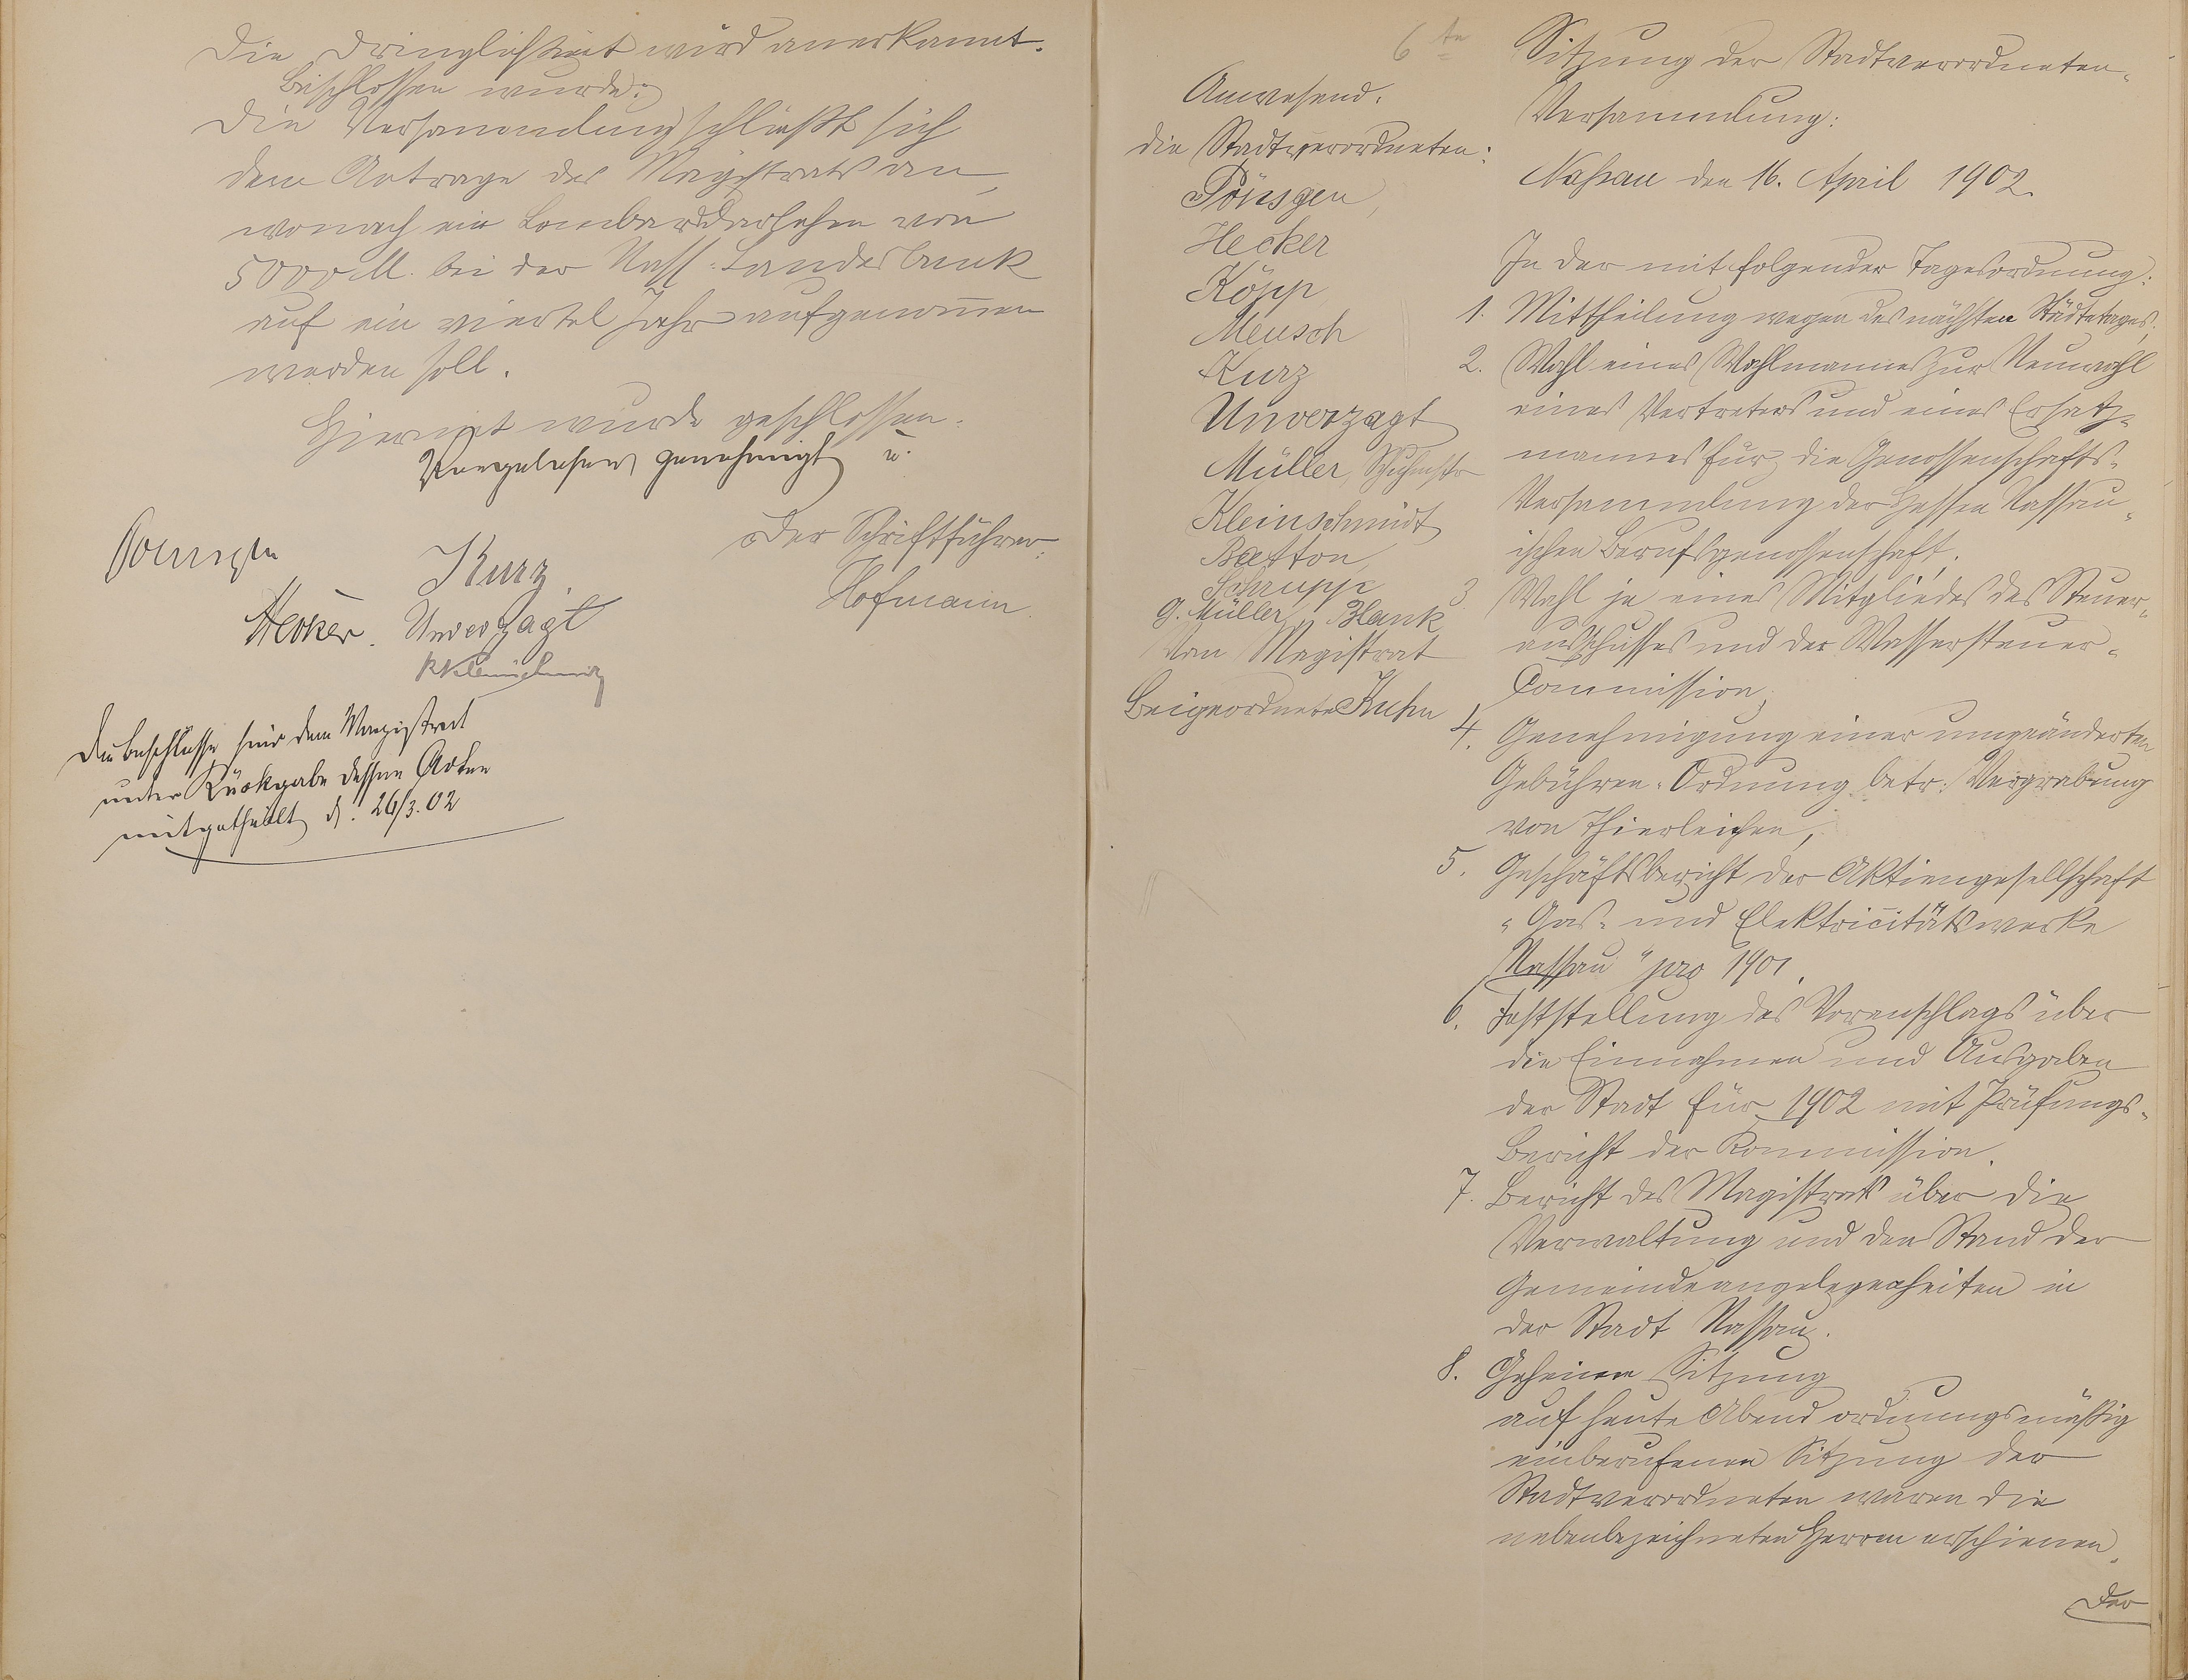 Die Dringlichkeit wird anerkannt.
Beschlossen wurde:
Die Versammlung schließt sich
dem Antrage des Magistrats an,
wonach ein Lombarddarlehen von
5000 M. bei der Nass. Landesbank
auf ein viertel Jahr aufgenom̅en
werden soll.
Hiermit wurde geschlossen.
Vorgelesen genehmigt u.
Poensgen
Kurz
Der Schriftführer:
Hofmann
Hecker. Unverzagt
Die Beschlüsse sind dem Magistrat
unter Rückgabe dessen Akten
mitgetheilt d. 26/3.02
6te
Anwesend:
die Stadtverordneten:
Pönsgen,
Hecker
Köpp
Meusch
Kurz
Unverzagt
Müller, Schuhmstr
Kleinschmidt
Batton,
Schrupp
G. Müller, Blank
Vom Magistrat
Beigeordneter Kuhn
Sitzung der Stadtverordneten-
Versammlung:
Nassau den 16. April 1902.
In der mit folgender Tagesordnung:
1. Mittheilung wegen des nächsten Städtetages;
2. Wahl eines Wahlmannes zur Neuwahl
eines Vertreters und eines Ersatz-
mannes für die Genossenschafts-
Versammlung der Hessen Nassau-
ischen Berufsgenossenschaft,
3 Wahl je eines Mitgliedes des Steuer-
ausschusses und der Wassersteuer-
Commission,
4. Genehmigung einer umgeänderten
Gebühren-Ordnung betr. Vergrabung
von Thierleichen,
5. Geschäftsbericht der Aktiengesellschaft
"Gas- und Elektricitätswerke
Nassau" pro 1901.
6. Feststellung des Voranschlags über
die Einnahmen und Ausgaben
der Stadt für 1902 mit Prüfungs-
Bericht der Kommission.
7. Bericht des Magistrats über die
Verwaltung und den Stand der
Gemeindeangelegenheiten in
der Stadt Nassau.
8. Geheime Sitzung
auf heute Abend ordnungsmäßig
einberufenen Sitzung der
Stadtverordneten waren die
nebenbezeichneten Herren erschienen.
Der